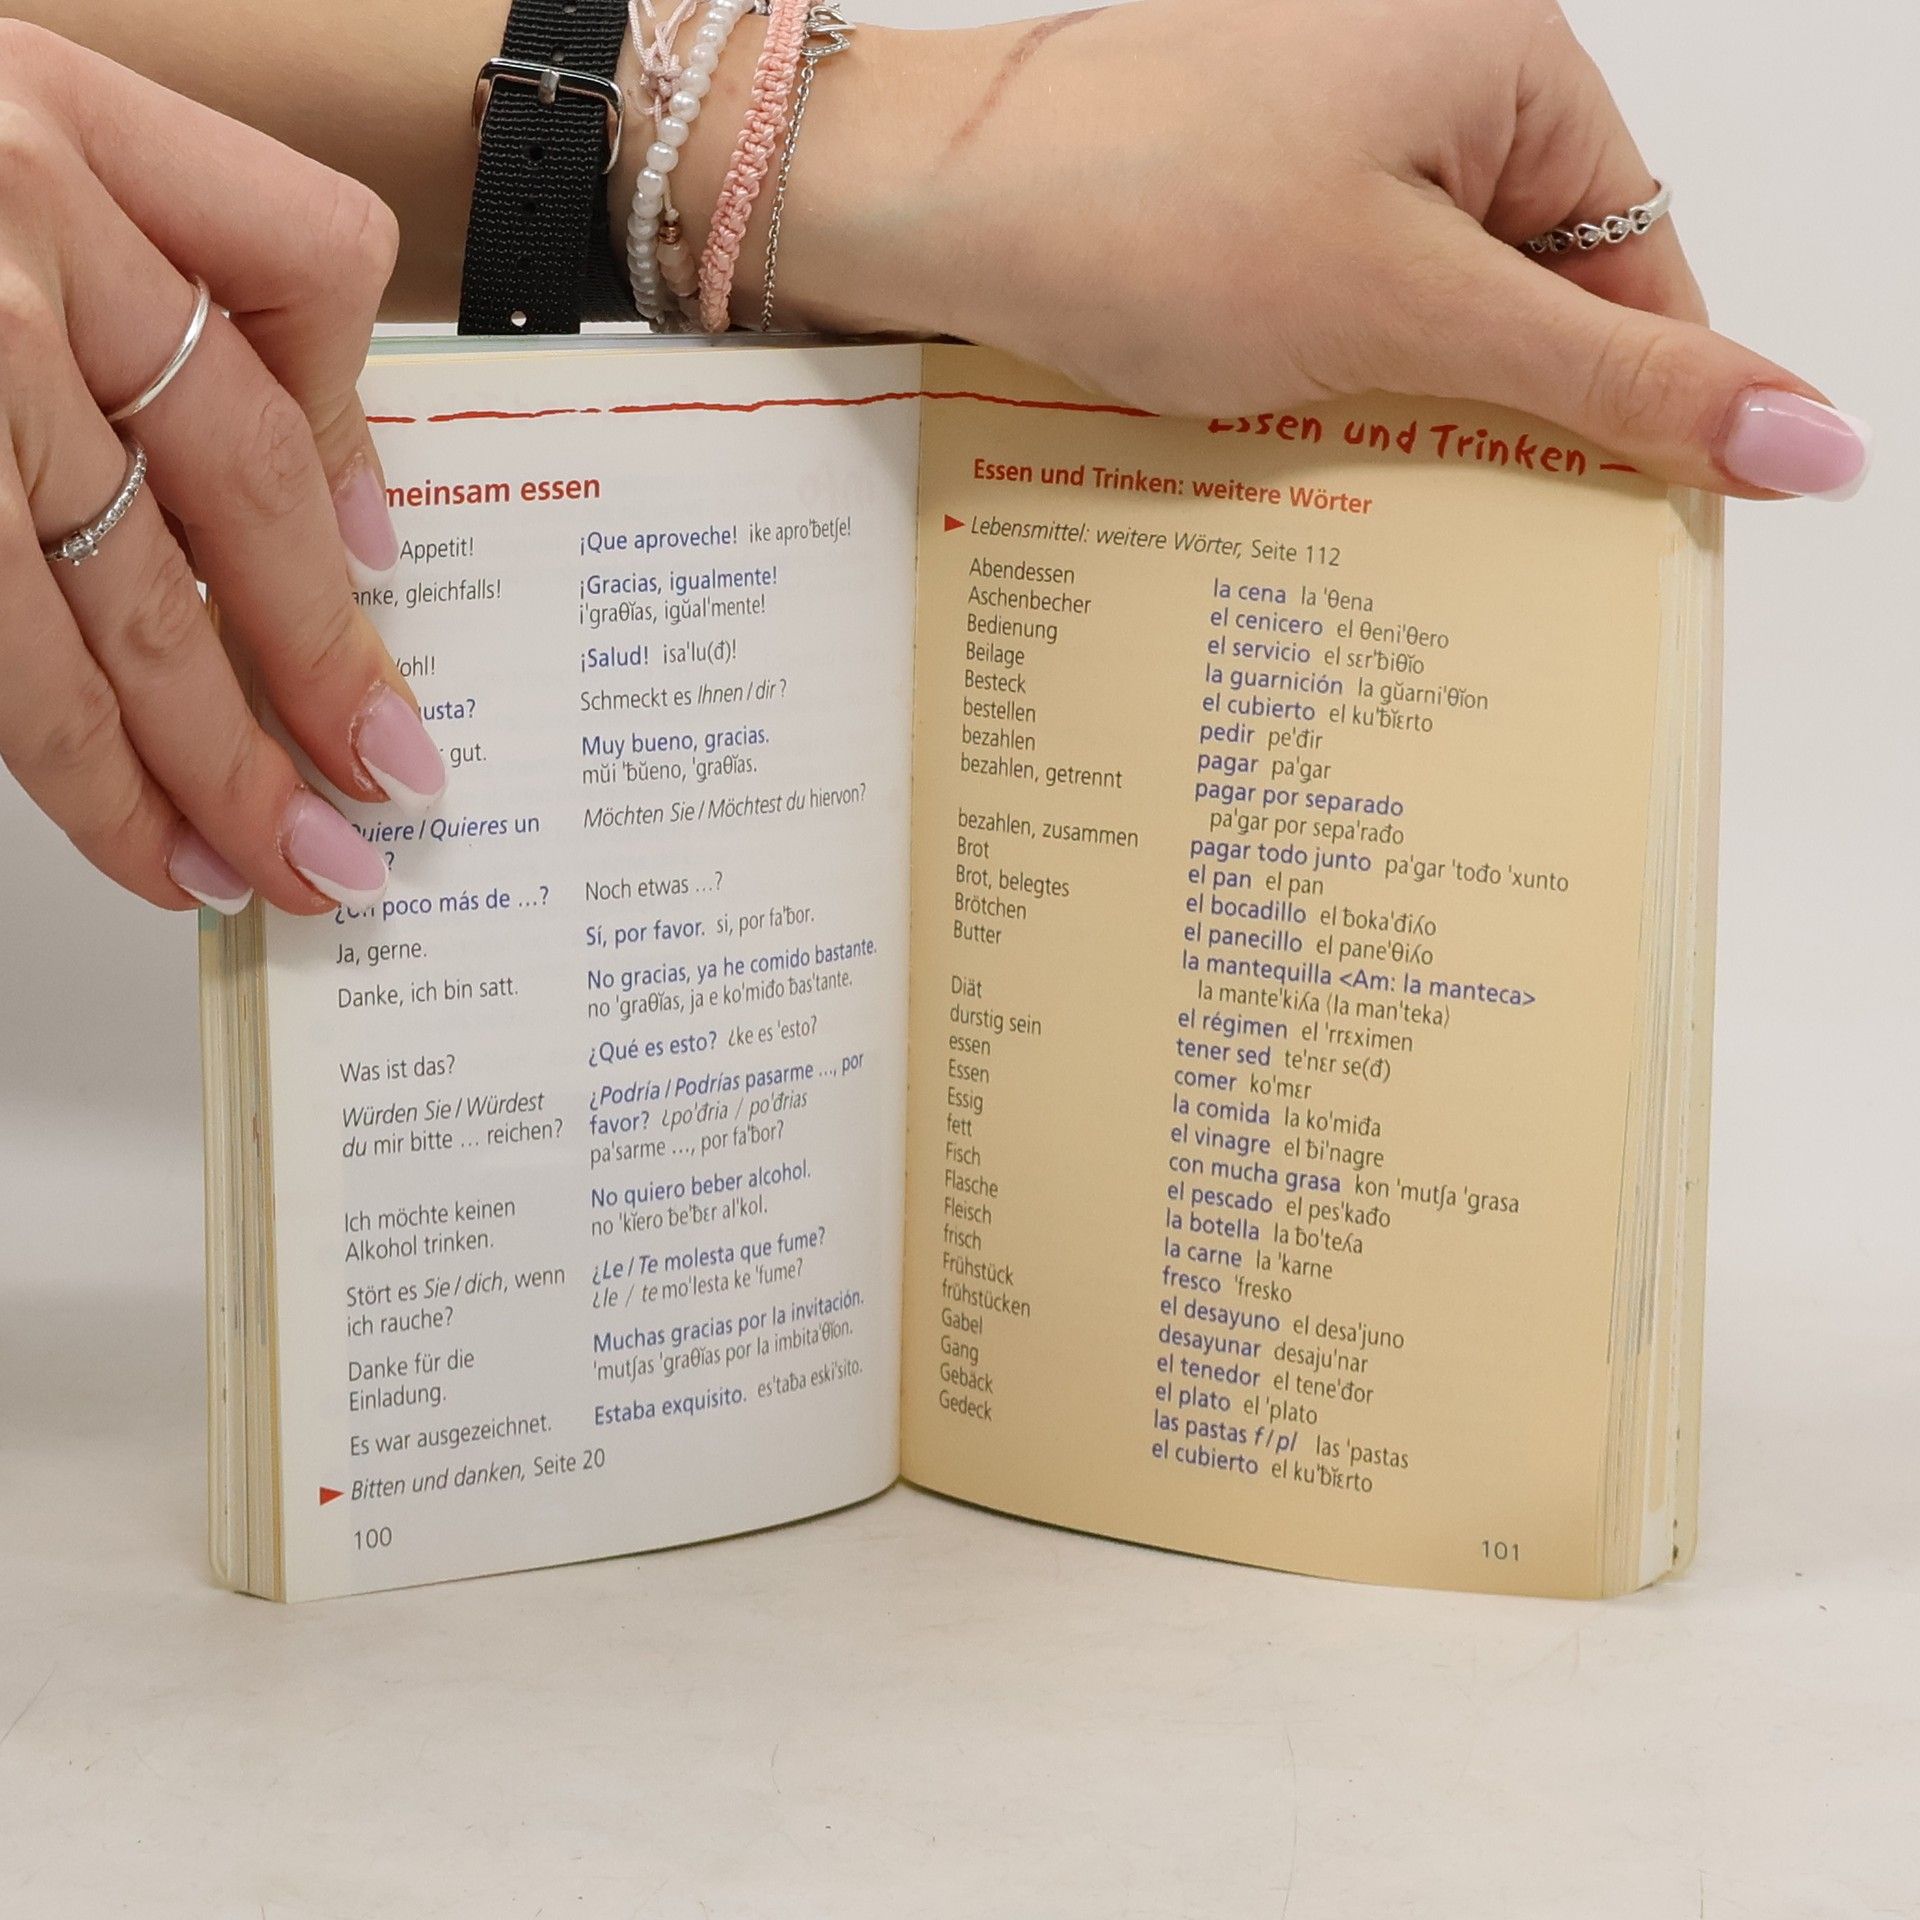 meinsam essen
Appetit! ¡Que aproveche! ike apro'ƀetʃe!
anke, gleichfalls! ¡Gracias, igualmente!
i'graθĭas, igŭal'mente!
¡Salud! isa'lu(đ)!
usta? Schmeckt es Ihnen / dir?
gut. Muy bueno, gracias.
mŭi 'ƀŭeno, 'graθĭas.
Quiere / Quieres un Möchten Sie / Möchtest du hiervon?
?
poco más de ...? Noch etwas ...?
Ja, gerne. Sí, por favor. si, por fa'ƀor.
Danke, ich bin satt. No gracias, ya he comido bastante.
no 'graθĭas, ja e ko'miđo ƀas'tante.
Was ist das? ¿Qué es esto? ¿ke es 'esto?
Würden Sie / Würdest ¿Podría / Podrías pasarme ..., por
du mir bitte ... reichen? favor? ¿po'đria / po'đrias
pa'sarme ..., por fa'ƀor?
Ich möchte keinen No quiero beber alcohol.
Alkohol trinken. no 'kĭero ƀe'ƀɛr al'kol.
Stört es Sie / dich, wenn ¿Le / Te molesta que fume?
ich rauche? ¿le / te mo'lesta ke 'fume?
Danke für die Muchas gracias por la invitación.
Einladung. 'mutʃas 'graθĭas por la imbita'θĭon.
Es war ausgezeichnet. Estaba exquisito. es'taƀa eski'sito.
Bitten und danken, Seite 20
100
Essen und Trinken
Essen und Trinken: weitere Wörter
Lebensmittel: weitere Wörter, Seite 112
Abendessen la cena la 'θena
Aschenbecher el cenicero el θeni'θero
Bedienung el servicio el sɛr'ƀiθĭo
Beilage la guarnición la gŭarni'θĭon
Besteck el cubierto el ku'ƀĭɛrto
bestellen pedir pe'đir
bezahlen pagar pa'gar
bezahlen, getrennt pagar por separado
pa'gar por sepa'rađo
bezahlen, zusammen pagar todo junto pa'gar 'tođo 'xunto
Brot el pan el pan
Brot, belegtes el bocadillo el ƀoka'điʎo
Brötchen el panecillo el pane'θiʎo
Butter la mantequilla <Am: la manteca>
la mante'kiʎa ⟨la man'teka⟩
Diät el régimen el 'rrɛximen
durstig sein tener sed te'nɛr se(đ)
essen comer ko'mɛr
Essen la comida la ko'miđa
Essig el vinagre el ƀi'nagre
fett con mucha grasa kon 'mutʃa 'grasa
Fisch el pescado el pes'kađo
Flasche la botella la ƀo'teʎa
Fleisch la carne la 'karne
frisch fresco 'fresko
Frühstück el desayuno el desa'juno
frühstücken desayunar desaju'nar
Gabel el tenedor el tene'đor
Gang el plato el 'plato
Gebäck las pastas f / pl las 'pastas
Gedeck el cubierto el ku'ƀĭɛrto
101